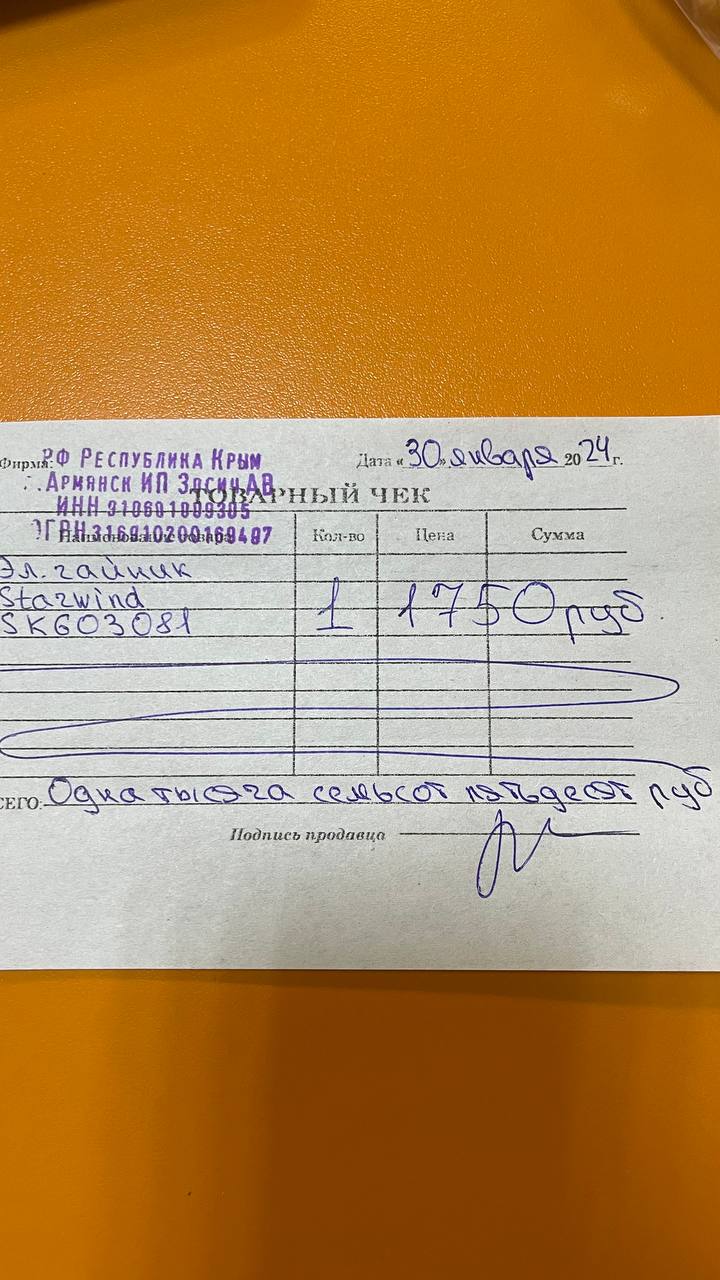 Фирма: РФ Республика Крым
Дата «30» января 2024 г.
г. Армянск ИП З АВ
ТОВАРНЫЙ ЧЕК
ИНН 910601009305
ОГРН 316910200169497
Наименование товара Кол-во Цена Сумма
Эл. чайник
Starwind
SKG03081 1 1750 руб
ВСЕГО: Одна тысяча семьсот пятьдесят руб
Подпись продавца